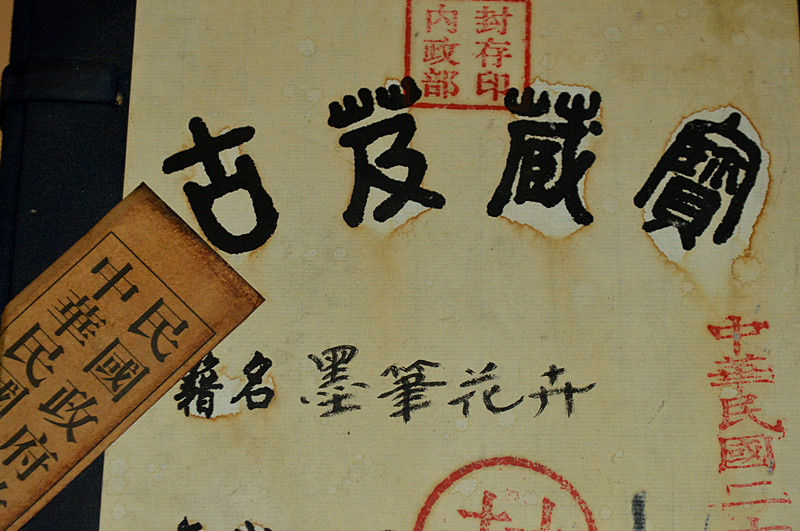 封存印
內政部
古芨蕆寶
籍名 墨筆花卉
中華民國二十
中華民國
民國政府
封